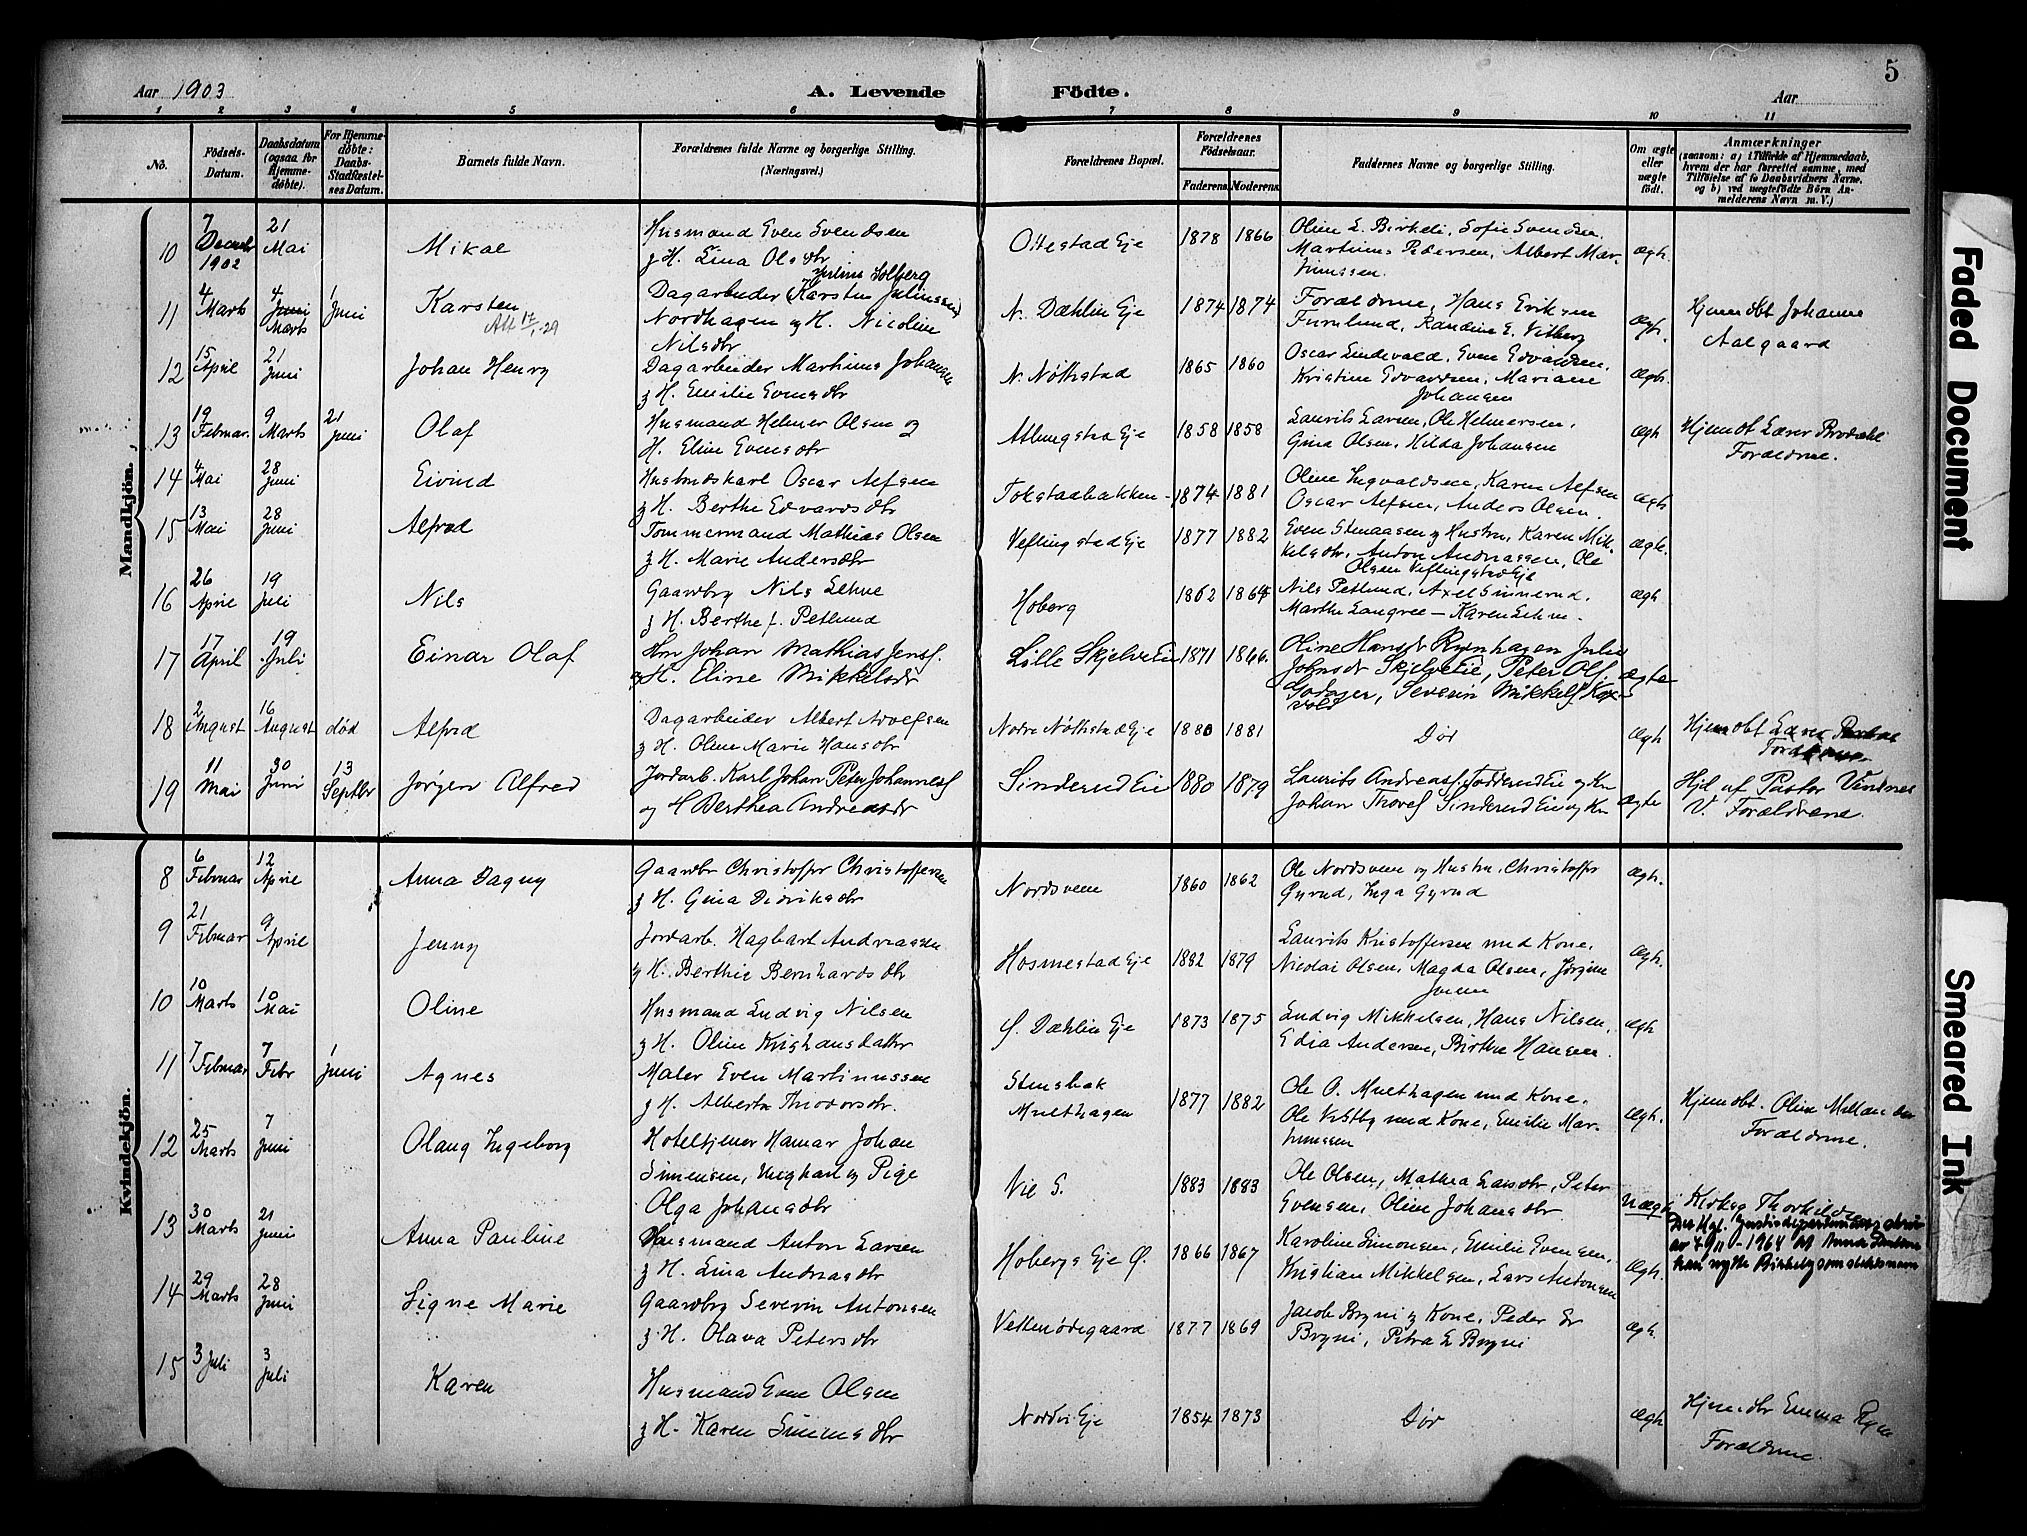 Aar 1903
A. Levende
Födte.
Aar
5
1 2 3 4 5 6 7 8 9 10 11
No.
Födsels-Datum.
Daabsdatum (ogsaa for Hjemme-döbte).
For Hjemme-döbte: Daabs-Stadfæstel-ses Datum.
Barnets fulde Navn.
Forældrenes fulde Navne og borgerlige Stilling. (Næringsvei.)
Forældrenes Bopæl.
Forældrenes Födselsaar.
Faderens. Moderens.
Faddernes Navne og borgerlige Stilling.
Om ægte eller uægte födt.
Anmærkninger
(saasom: a) i Tilfælde af Hjemmedaab, hvem der har forrettet samme, med Tilföielse af to Daabsvidners Navne, og b) ved uægtefödte Börn An-melderens Navn m. V.)
Mandkjön.
10 7 Decembr 1902 21 Mai Mikal
Husmand Even Evendsen
g H. Lina Olsdtr
Ottestad Eje 1878 1866
Oline L. Birkeli, Sofie Evensen,
Martinus Pedersen, Albert Mar-
tinussen. ægt.
11 4 Marts 4 Juni Marts 1 Juni Karsten
Julius Solberg
Dagarbeider (Karsten Juliussen)
Nordhagen og H. Nicoline
Nilsdtr
N. Dæhlin Eje 1874 1874
Forældrene, Hans Eriksen
Furulund, Randine E. Vitberg ægt.
Hjemdøbt Johanne
Aalgaard
12 15 April 21 Juni Johan Henry
Dagarbeider Martinus Johansen
g H. Emilie Evensdtr
N. Nøthstad 1865 1860
Oscar Lindevald, Even Edvardsen,
Kristine Edvardsen, Mariane
Johansen ægt.
13 19 Februar. 9 Marts 21 Juni Olaf
Husmand Helmer Olsen og
H. Eline Evensdtr
Atlungstad Eje 1858 1858
Laurits Larsen, Ole Helmersen,
Gina Olsen, Hilda Johansen ægt
Hjemdøbt Lærer Brodahl
Forældrene.
14 4 Mai 28 Juni Eivind
Husmdskarl Oscar Alfsen
g H. Berthe Edvardsdtr
Tokstadbakken 1874 1881
Oline Ingvaldsen, Karen Alfsen
Oscar Alfsen, Anders Olsen. ægt
15 13 Mai 28 Juni Alfred
Tømmermand Mathias Olsen
g H. Marie Andersdtr
Veflingstad Eje 1877 1882
Even Stenaasen g Hustru, Karen Mik-
kelsdtr, Anton Andreassen, Ole
Olsen Veflingstad Eje ægt.
16 26 April 19 Juli Nils
Gaardbr Nils Lehne
g H. Berthe f. Petlund
Hoberg 1862 1864
Nils Petlund, Axel Simerud,
Marthe Langree — Karen Lehne. ægt
17 17 April 19 Juli Einar Olaf
Hm Johan Mathias Jensf.
og H. Eline Mikkelsdr
Lille Skjelve Eie 1871 1866.
Oline Hansdr Rynhagen Julie
Johnsdr Skjelve Eie, Peter Olf.
Godager, Severin Mikkelsf ægte
18 2 August 16 August død Alfred
Dagarbeider Albert Adolfsen
g H. Oline Marie Hansdtr
Nordre Nøthstad Eje 1880 1881
Dør ægt
Hjemdøbt Lærer
Forældrene
19 11 Mai 30 Juni 13 Septbr Jørgen Alfred
Jordarb. Karl Johan Peter Johannesf
og H Berthea Andreasdr
Sinderud Eie 1880 1879
Laurits Andreasf, Fodderud Eie og Kn
Johan Thoresf Sinderud Eie og Kn ægte
Hjd af Pastor Vintnes
V. Forældrene.
Kvindekjön.
8 6 Februar 12 April Anna Dagny
Gaardbr Christoffer Christoffersen
g H. Gina Didriksdtr
Nordsveen 1860 1862
Ole Nordsveen og Hustru, Christoffer
Gyrud, Inga Gyrud ægt.
9 21 Februar 9 April Jenny
Jordarb. Hagbart Andreassen
g H. Berthie Bernhardsdtr
Hosmestad Eje 1882 1879
Laurits Kristoffersen med Kone,
Nicolai Olsen, Magda Olsen, Jørgine
Jensen ægt.
10 10 Marts 10 Mai Oline
Husmand Ludvig Nilsen
g H. Oline Kristiansdatter
Ø. Dæhlin Eje 1873 1875
Ludvig Mikkelsen, Hans Nilsen,
Edia Andersen, Birthe Hansen. ægt
11 7 Februar 7 Febr 1 Juni Agnes
Maler Even Martinussen
g H. Alberte Thodorsdtr.
Stensbak
Multhagen 1877 1882
Ole O. Multhagen med Kone,
Ole Viseth med Kone, Emilie Mar-
tinussen ægt.
Hjemdøbt. Oline
Forældrene.
12 25 Marts 7 Juni Olaug Ingeborg
Hoteltjener Hamar Johan
Simensen, Ungkarl g Pige
Olga Johansdtr
Vie S. 1883 1883
Ole Olsen, Mathea Larsdtr, Peter
Evensen, Oline Johansdtr uægt
Kirkesg Thorkildsen
13 30 Marts 21 Juni Anna Pauline
Husmand Anton Larsen
g H. Lina Andreasdtr
Hobergs Eje Ø. 1866 1867
Karoline Simonsen, Emilie Evensen,
Kristian Mikkelsen, Lars Antonsen ægt.
Det Kgl. Justisdepartement skriv
av 4/11-1964 at Anna Pauline
kan nytte Birkely som slektsnavn
14 29 Marts 28 Juni Signe Marie
Gaardbr Severin Antonsen
g H. Olava Petersdtr
Vettenødegaard 1877 1869
Jacob Bryni g Kone, Peder Er
Bryni, Petra E Bryni ægt.
15 3 Juli 3 Juli Karen
Husmand Even Olsen
g H. Karen Simensdtr
Nordvi Eje 1854 1873
Dør ægt
Hjemdbt Emma
Forældrene.
Faded Document
Smeared Ink